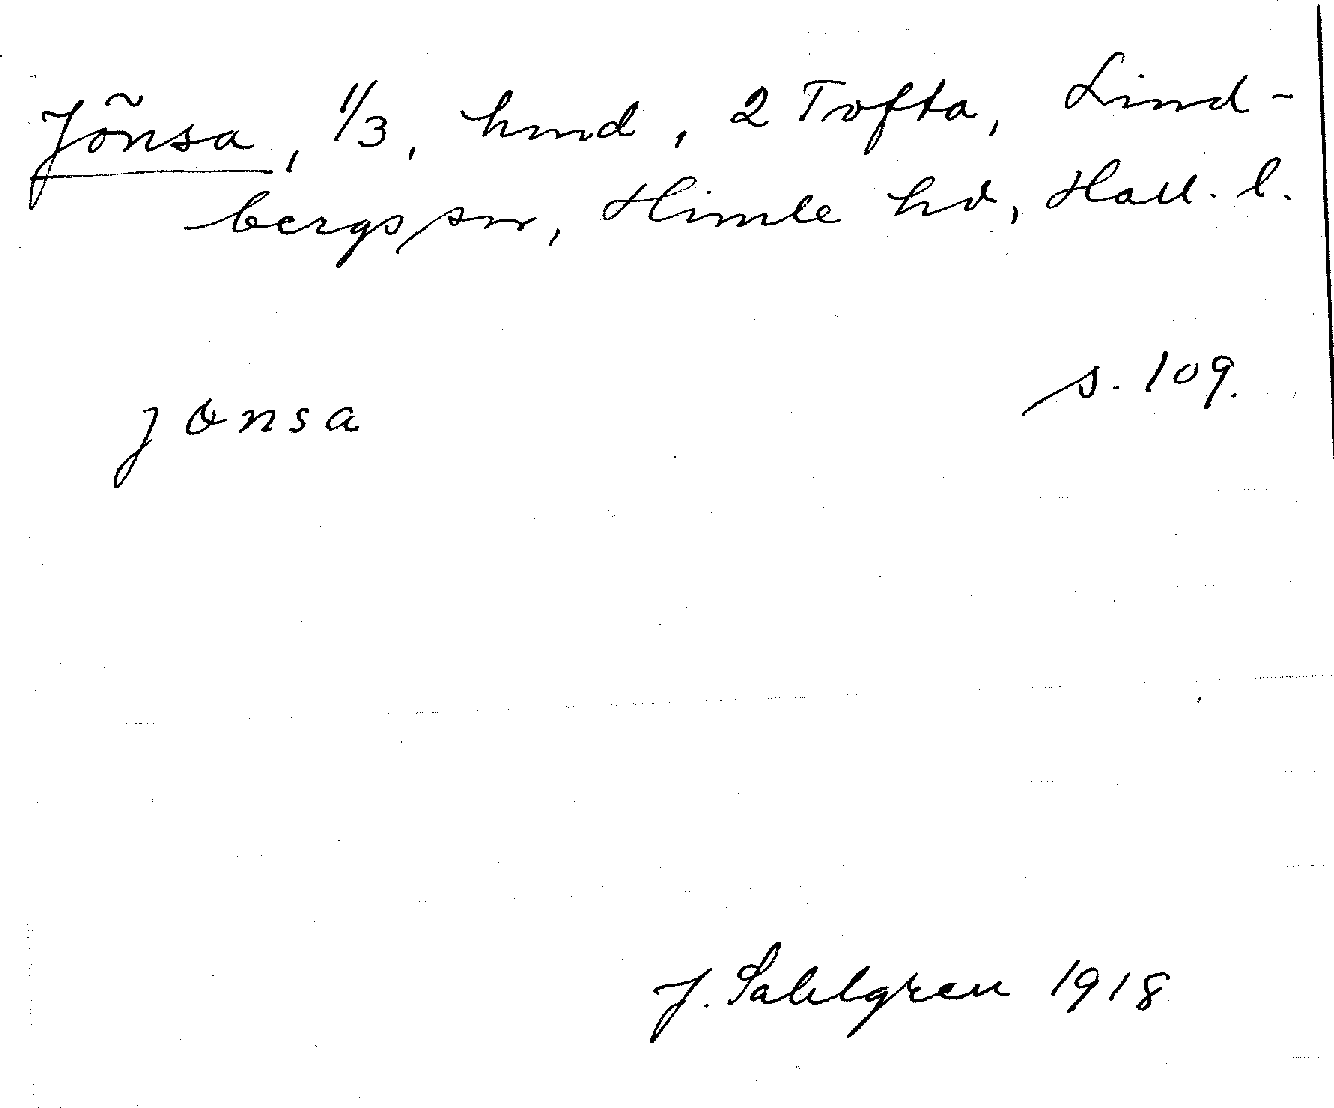 Jõnsa, 1/3, hmd, 2 Tofta, Lind-
bergs sn, Himle hd, Hall. l.
s. 109.
jönsa
J. Sahlgren 1918